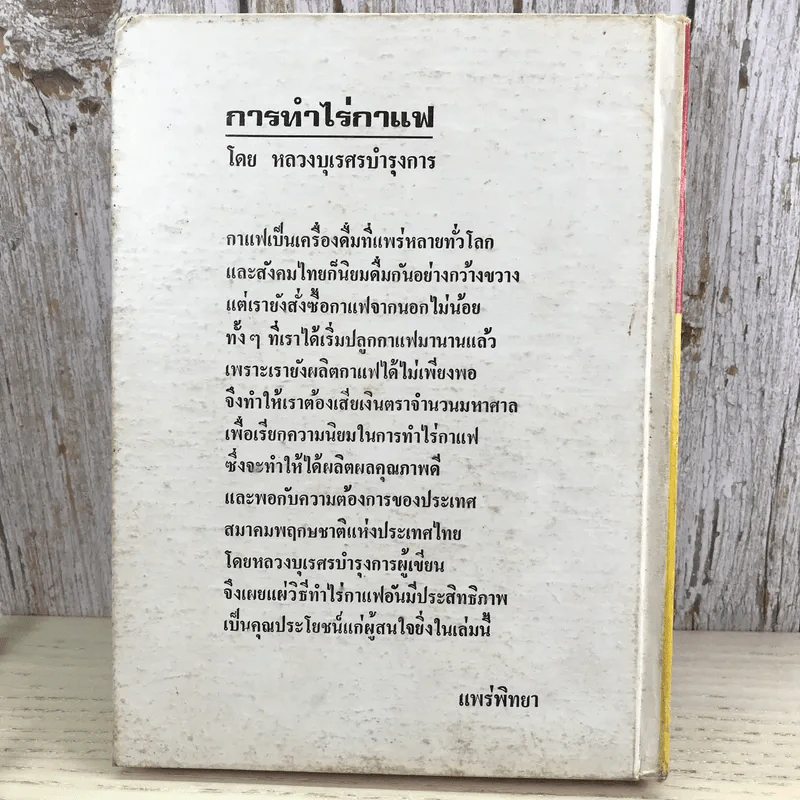 การทำไร่กาแฟ
โดย หลวงบุเรศรบำรุงการ
กาแฟเป็นเครื่องดื่มที่แพร่หลายทั่วโลก
และสังคมไทยก็นิยมดื่มกันอย่างกว้างขวาง
แต่เรายังสั่งซื้อกาแฟจากนอกไม่น้อย
ทั้ง ๆ ที่เราได้เริ่มปลูกกาแฟมานานแล้ว
เพราะเรายังผลิตกาแฟได้ไม่เพียงพอ
จึงทำให้เราต้องเสียเงินตราจำนวนมหาศาล
เพื่อเรียกความนิยมในการทำไร่กาแฟ
ซึ่งจะทำให้ได้ผลิตผลคุณภาพดี
และพอกับความต้องการของประเทศ
สมาคมพฤกษชาติแห่งประเทศไทย
โดยหลวงบุเรศรบำรุงการผู้เขียน
จึงเผยแผ่วิธีทำไร่กาแฟอันมีประสิทธิภาพ
เป็นคุณประโยชน์แก่ผู้สนใจยิ่งในเล่มนี้
แพร่พิทยา